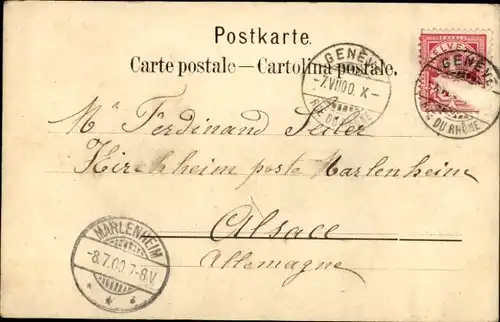 Postkarte.
Carte postale — Cartolina postale.
HELVETIA
GENÈVE
-7.VII 00. X-
RUE DU RHÔNE
GENÈVE
DU RHÔNE
Mr Ferdinand Seiler
Kirchheim poste Marlenheim
Alsace
Allemagne
MARLENHEIM
-8.7.00. 7-8V.